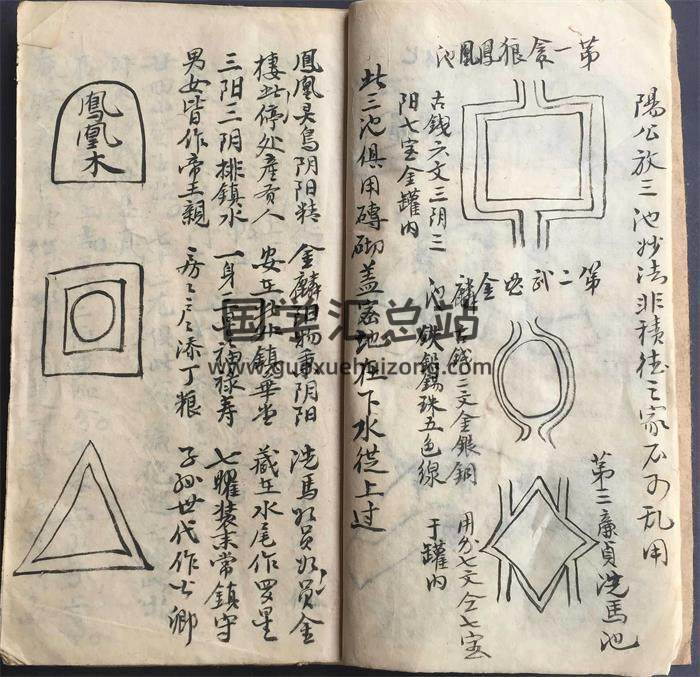 陽公放三池妙法非積德之家不可乱用
第一貪狼鳳凰池
古钱六文三阴三
阳七宝金罐内
第二武曲金麟
池
古钱二文金銀銅
鉄錫珠五色線
第三廉貞洗馬池
七文仝七宝
于罐内
此三池俱用磚砌盖密池在下水從上过
鳳凰灵鸟阴阳精
棲此停处產贡人
三阳三阴排鎮水
男女皆作帝王親
金麟阳物秉阴阳
安在外鎮華堂
一身禄寿
房々尽添丁粮
洗馬金
藏在水尾作罗星
七曜装来常鎮守
子孙世代作公卿
鳳凰木
国学汇总站
www.guoxuehuizong.com